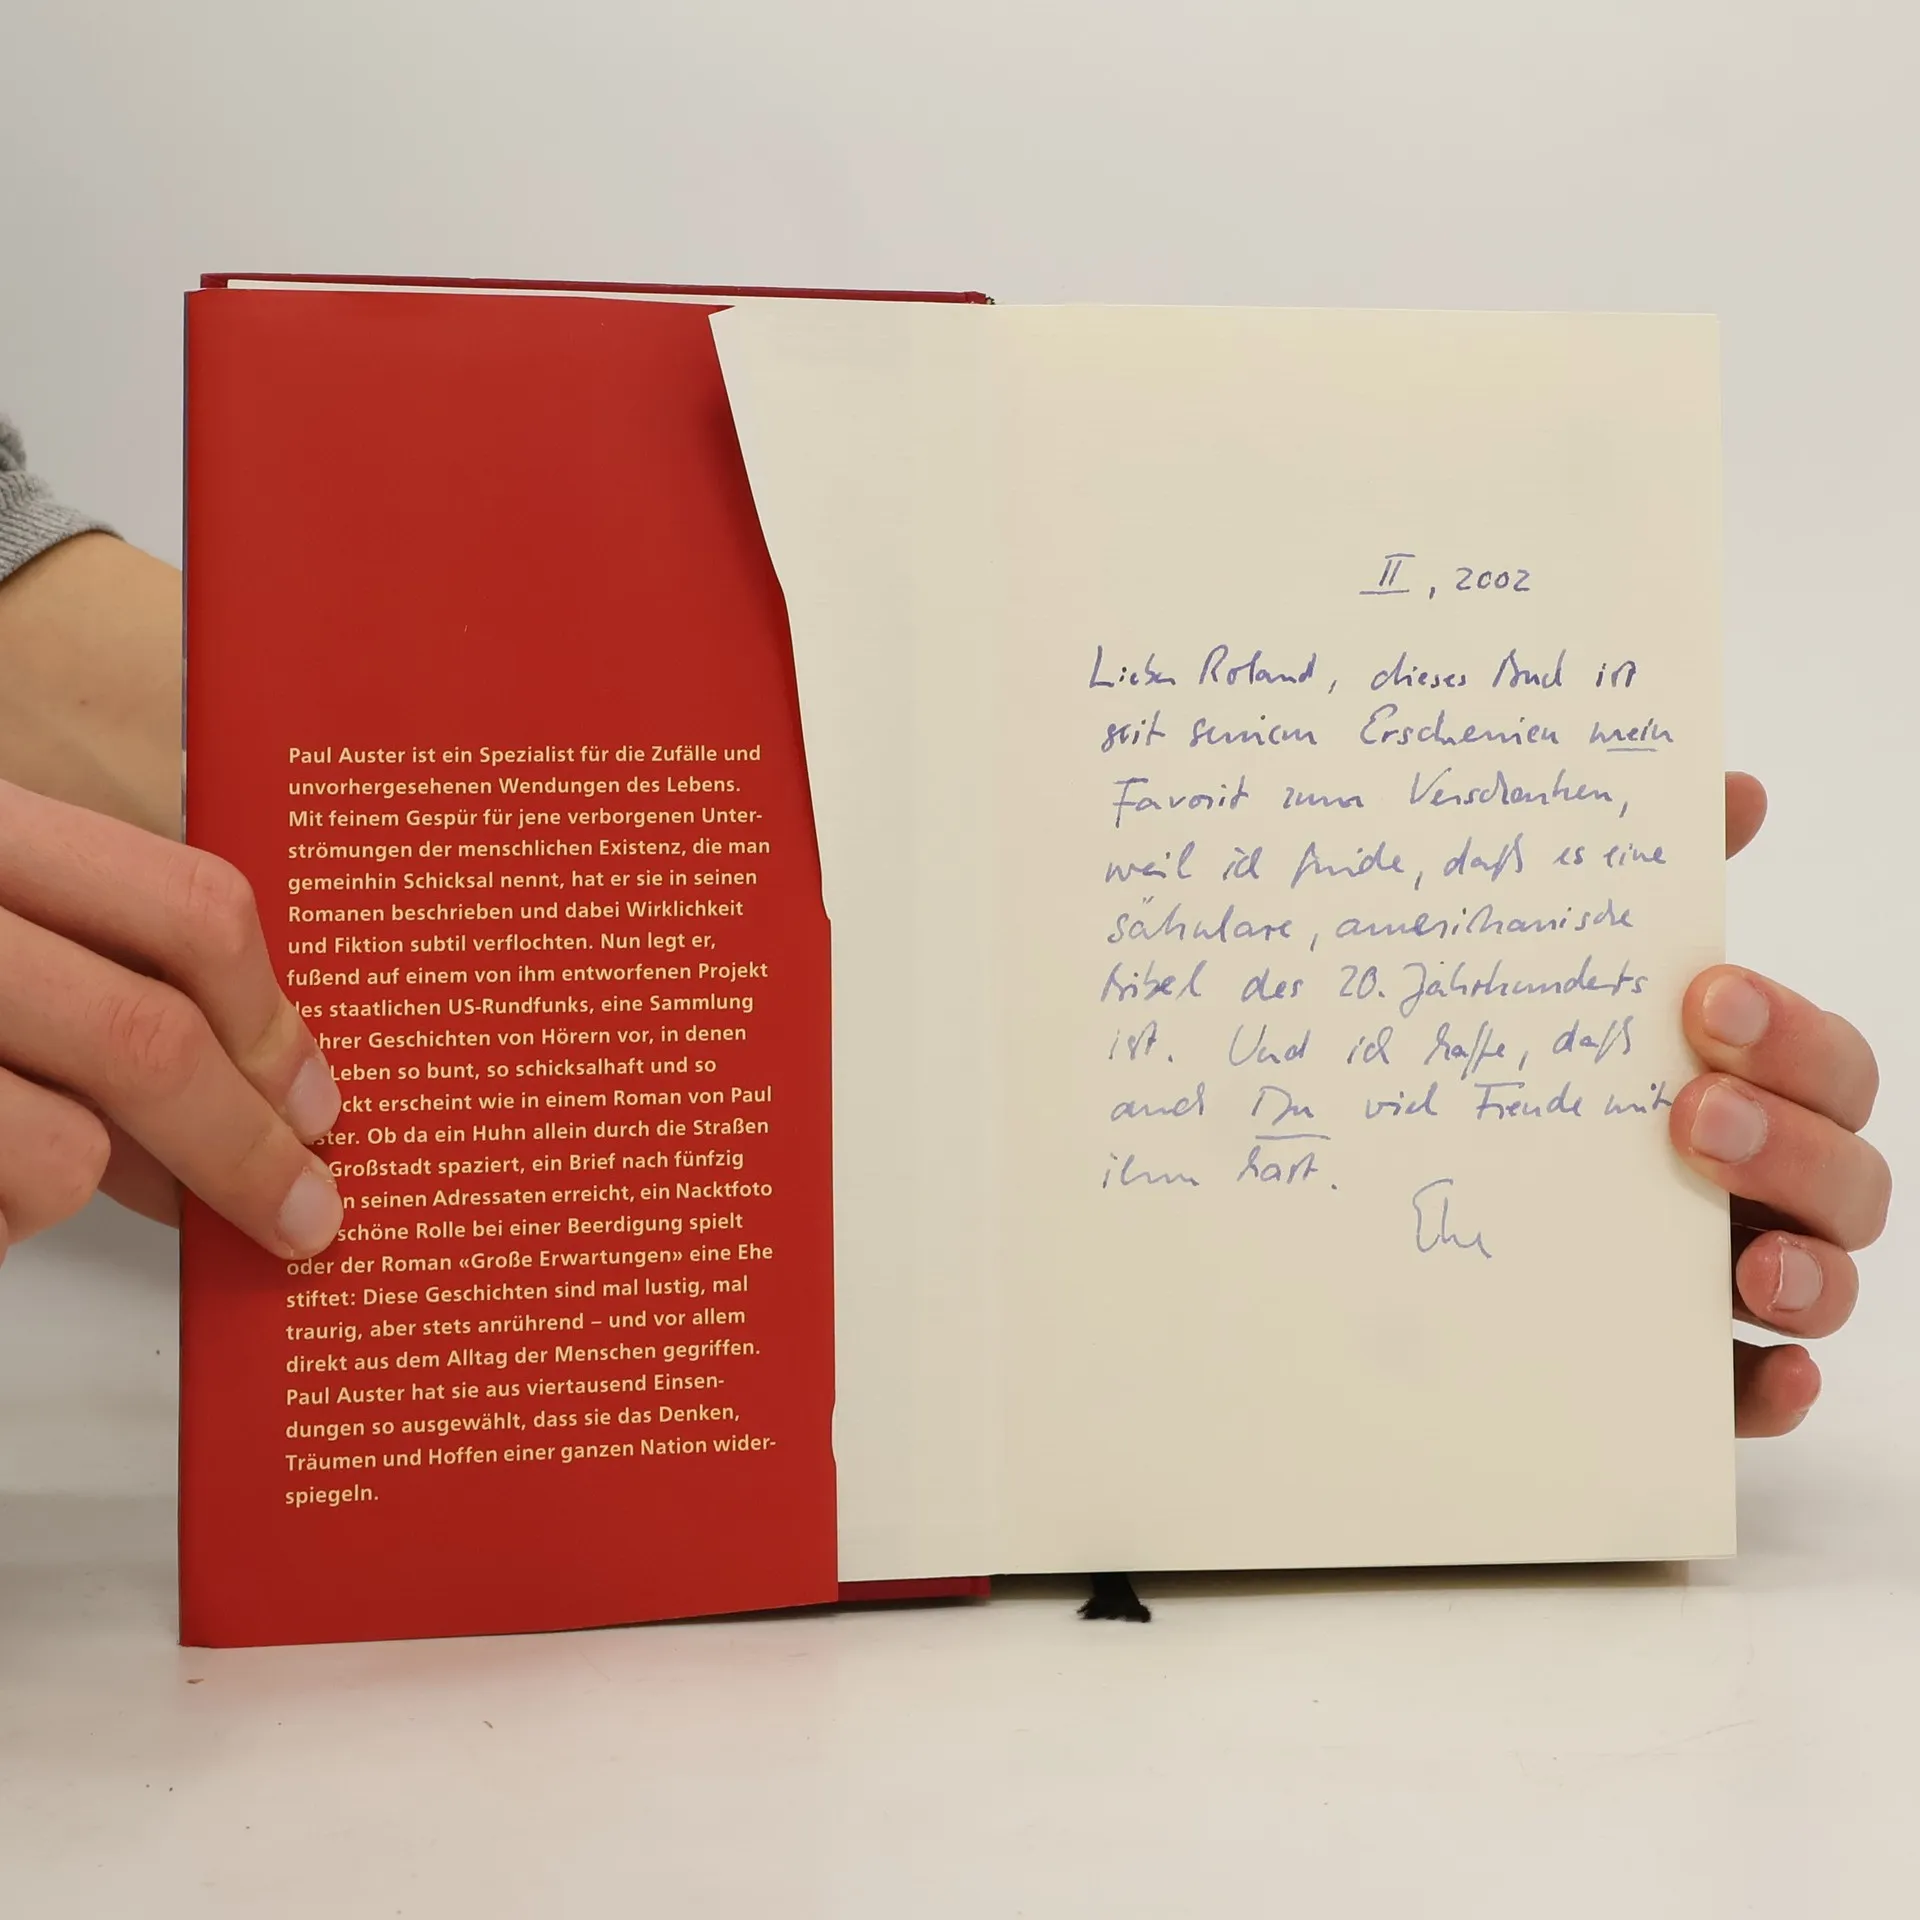 Paul Auster ist ein Spezialist für die Zufälle und
unvorhergesehenen Wendungen des Lebens.
Mit feinem Gespür für jene verborgenen Unter-
strömungen der menschlichen Existenz, die man
gemeinhin Schicksal nennt, hat er sie in seinen
Romanen beschrieben und dabei Wirklichkeit
und Fiktion subtil verflochten. Nun legt er,
fußend auf einem von ihm entworfenen Projekt
des staatlichen US-Rundfunks, eine Sammlung
hrer Geschichten von Hörern vor, in denen
Leben so bunt, so schicksalhaft und so
ckt erscheint wie in einem Roman von Paul
ster. Ob da ein Huhn allein durch die Straßen
Großstadt spaziert, ein Brief nach fünfzig
n seinen Adressaten erreicht, ein Nacktfoto
schöne Rolle bei einer Beerdigung spielt
oder der Roman «Große Erwartungen» eine Ehe
stiftet: Diese Geschichten sind mal lustig, mal
traurig, aber stets anrührend – und vor allem
direkt aus dem Alltag der Menschen gegriffen.
Paul Auster hat sie aus viertausend Einsen-
dungen so ausgewählt, dass sie das Denken,
Träumen und Hoffen einer ganzen Nation wider-
spiegeln.
II, 2002
Lieber Roland, dieses Buch ist
seit seinem Erscheinen mein
Favorit zum Verschenken,
weil ich finde, daß es eine
säkulare, amerikanische
Bibel des 20. Jahrhunderts
ist. Und ich hoffe, daß
auch Du viel Freude mit
ihm hast.